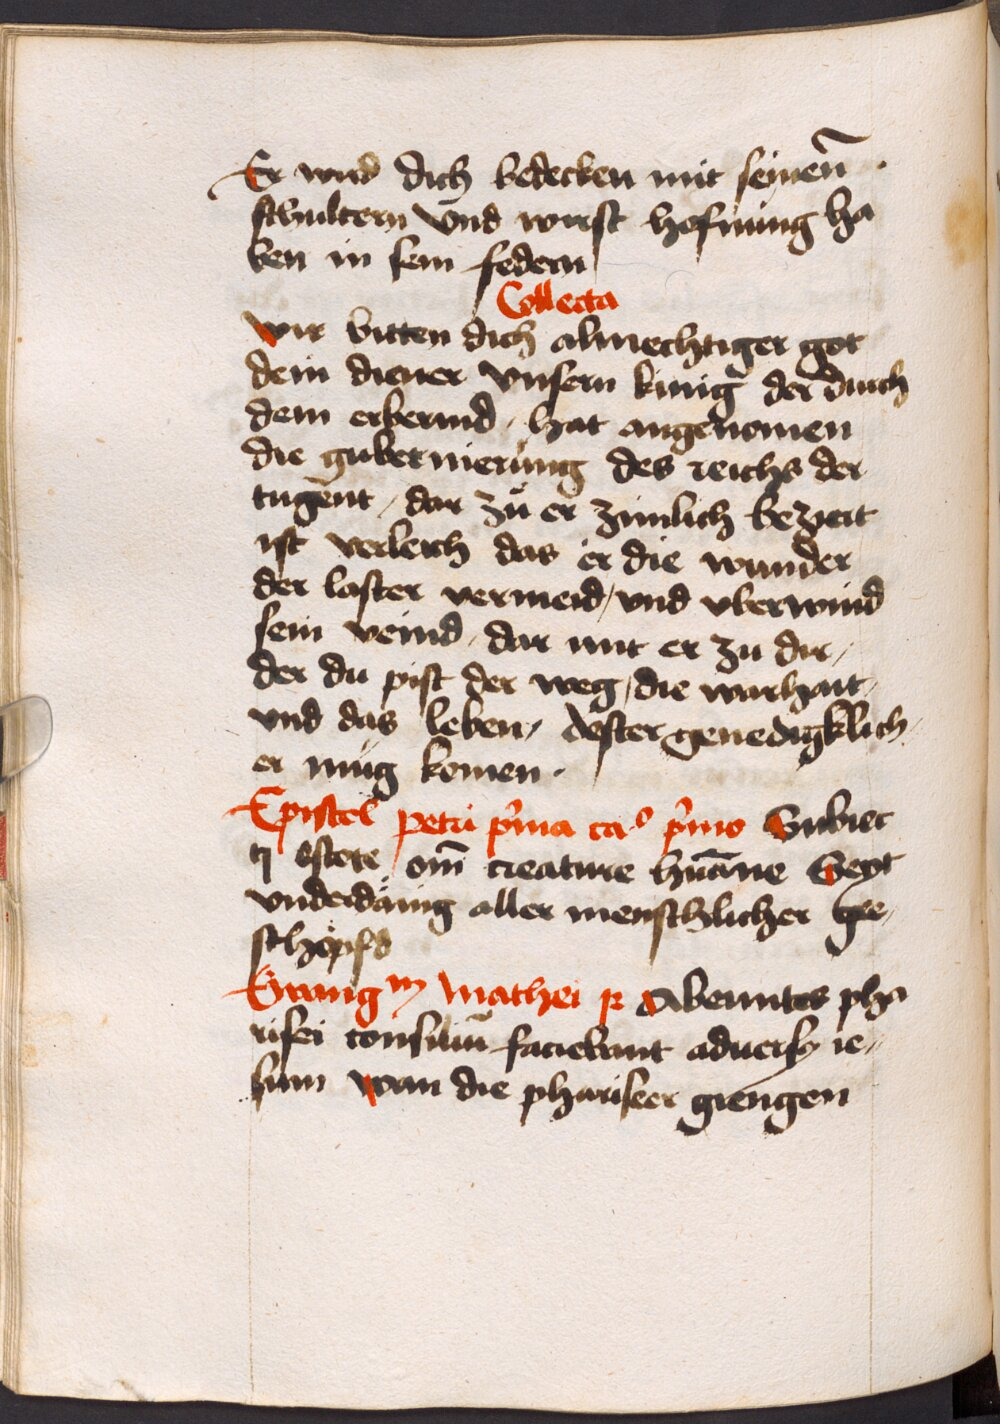 Er wird dich bedecken mit seinen̄
schultern Vnd wirst hofnung ha
ben in sein federn
Collecta
Wir bitten dich almechtiger got
dein diener Vnsern kunig der durch
dein erbermd / hat angenomen
die gubernierung des reichs der
tugent / dar zů er zimlich beziert
ist verleich das er die wunder
der laster vermeid / vnd vberwind
sein veind / dar mit er zu dir /
der du pist der weg / die warhait /
vnd das leben / dester genedigklich
er müg komen ·
Epistel petri p̄ma ca.º p̄mo Subiec
ti estote om̄ creature hūane Seyt
vnderdänig aller menschlicher ge /
schöpfd
Ewangm mathei Abeuntes pha
risei consiliū faciebant aduersꝫ ie /
sum Wan die phariseer giengen